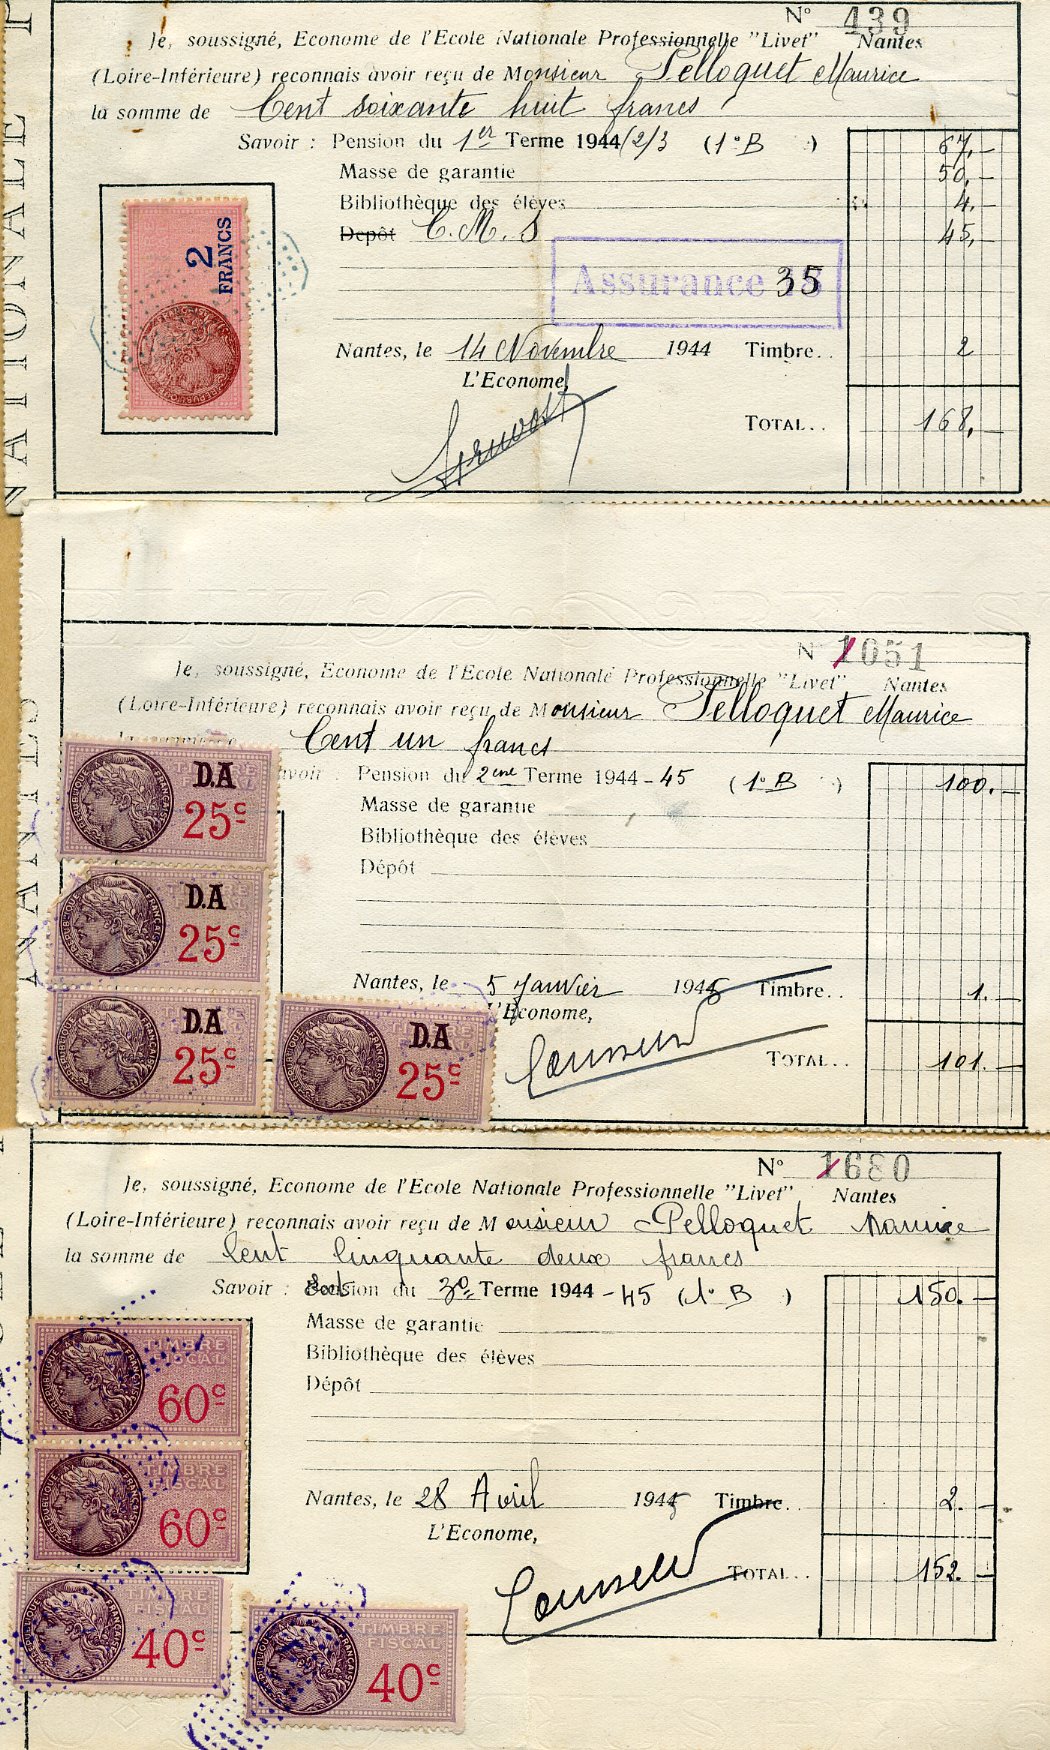 N° 439
Je, soussigné, Econome de l'Ecole Nationale Professionnelle "Livet" Nantes
(Loire-Inférieure) reconnais avoir reçu de Monsieur Pelloquet Maurice
la somme de Cent soixante huit francs
Savoir : Pension du 1er Terme 1944/2/3 (1° B ) 67,-
Masse de garantie 50,-
Bibliothèque des élèves 4,-
Depôt C.M.S 45,-
2 FRANCS
Assurance 35
Nantes, le 14 Novembre 1944 Timbre.. 2
L'Econome,
TOTAL.. 168,-
NATIONALE P
N° 1051
Je, soussigné, Econome de l'Ecole Nationale Professionnelle "Livet" Nantes
(Loire-Inférieure) reconnais avoir reçu de Monsieur Pelloquet Maurice
Cent un francs
Savoir : Pension du 2ème Terme 1944-45 (1° B ) 100.-
Masse de garantie
Bibliothèque des élèves
Dépôt
D.A 25c
D.A 25c
D.A 25c
D.A 25c
Nantes, le 5 Janvier 1945 Timbre.. 1.-
L'Econome,
TOTAL.. 101.-
NANTES
N° 1680
Je, soussigné, Econome de l'Ecole Nationale Professionnelle "Livet" Nantes
(Loire-Inférieure) reconnais avoir reçu de Monsieur Pelloquet Maurice
la somme de Cent Cinquante deux francs
Savoir : Pension du 3e Terme 1944-45 (1° B ) 150.-
Masse de garantie
Bibliothèque des élèves
Dépôt
TIMBRE FISCAL 60c
TIMBRE FISCAL 60c
TIMBRE FISCAL 40c
TIMBRE FISCAL 40c
Nantes, le 28 Avril 1945 Timbre.. 2.-
L'Econome,
TOTAL.. 152.-